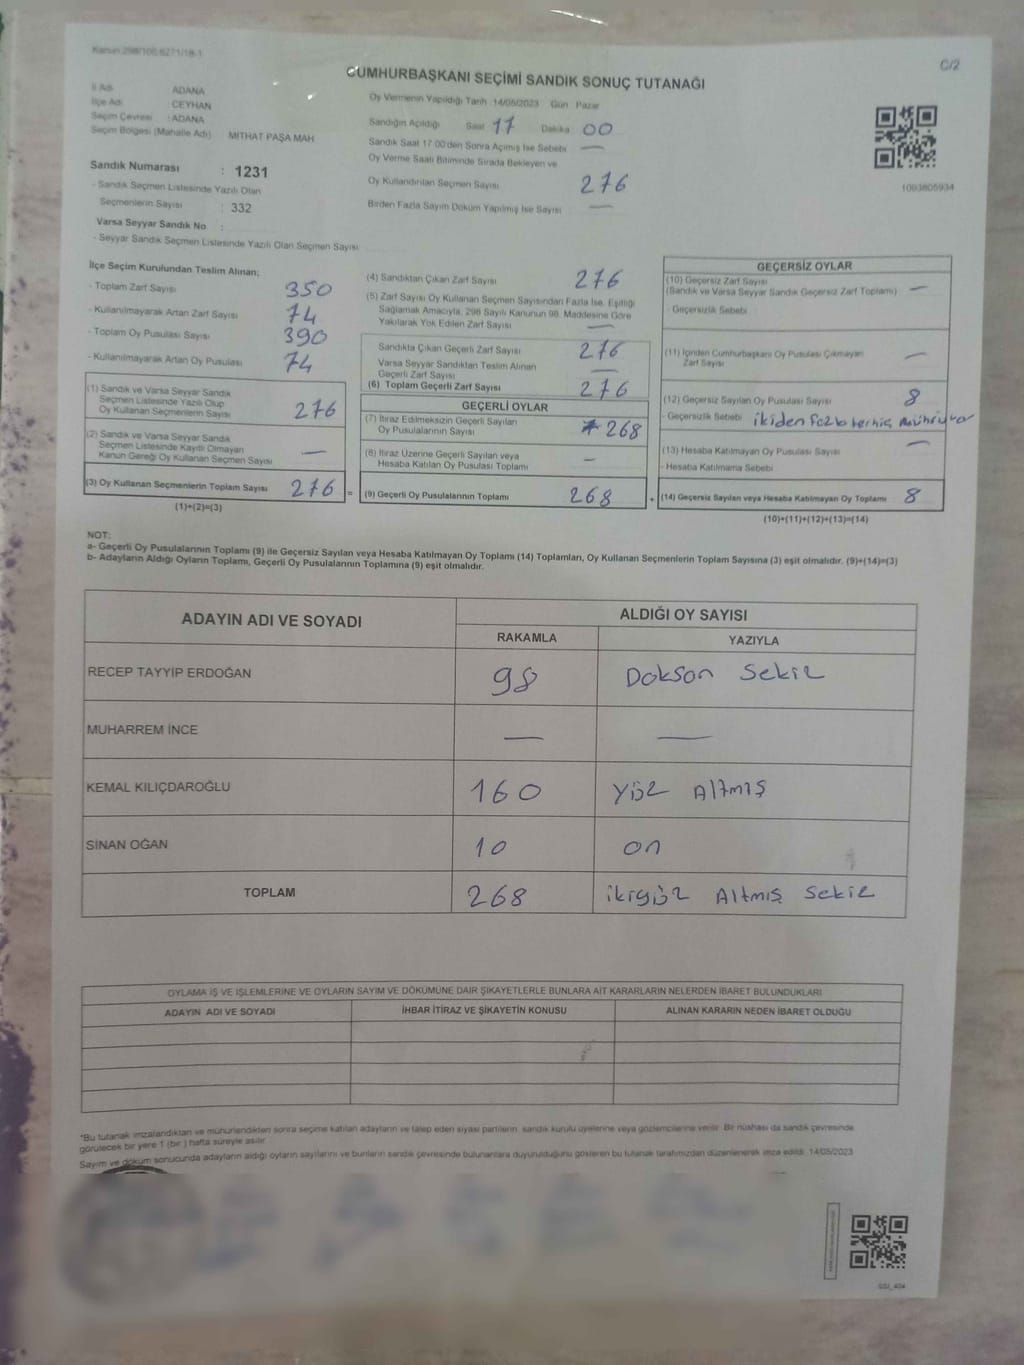 Kanun:298/105,6271/18-1
C/2
CUMHURBAŞKANI SEÇİMİ SANDIK SONUÇ TUTANAĞI
İl Adı ADANA
İlçe Adı : CEYHAN
Seçim Çevresi : ADANA
Seçim Bölgesi (Mahalle Adı) MİTHAT PAŞA MAH
Sandık Numarası : 1231
- Sandık Seçmen Listesinde Yazılı Olan
Seçmenlerin Sayısı : 332
Varsa Seyyar Sandık No :
- Seyyar Sandık Seçmen Listesinde Yazılı Olan Seçmen Sayısı
Oy Vermenin Yapıldığı Tarih :14/05/2023 Gün Pazar
Sandığın Açıldığı Saat 17 Dakika 00
Sandık Saat 17:00'den Sonra Açımış İse Sebebi —
Oy Verme Saati Bitiminde Sırada Bekleyen ve
Oy Kullandırılan Seçmen Sayısı 276
Birden Fazla Sayım Döküm Yapılmış İse Sayısı —
1093805934
İlçe Seçim Kurulundan Teslim Alınan;
- Toplam Zarf Sayısı 350
- Kullanılmayarak Artan Zarf Sayısı 74
- Toplam Oy Pusulası Sayısı 390
- Kullanılmayarak Artan Oy Pusulası 74
(1) Sandık ve Varsa Seyyar Sandık
Seçmen Listesinde Yazılı Olup
Oy Kullanan Seçmenlerin Sayısı 276
(2) Sandık ve Varsa Seyyar Sandık
Seçmen Listesinde Kayıtlı Olmayan
Kanun Gereği Oy Kullanan Seçmen Sayısı —
(3) Oy Kullanan Seçmenlerin Toplam Sayısı 276 =
(1)+(2)=(3)
(4) Sandıktan Çıkan Zarf Sayısı 276
(5) Zarf Sayısı Oy Kullanan Seçmen Sayısından Fazla İse, Eşitliği
Sağlamak Amacıyla, 298 Sayılı Kanunun 98. Maddesine Göre
Yakılarak Yok Edilen Zarf Sayısı —
Sandıkta Çıkan Geçerli Zarf Sayısı 276
Varsa Seyyar Sandıktan Teslim Alınan
Geçerli Zarf Sayısı —
(6) Toplam Geçerli Zarf Sayısı 276
GEÇERLİ OYLAR
(7) İtiraz Edilmeksizin Geçerli Sayılan
Oy Pusulalarının Sayısı 268
(8) İtiraz Üzerine Geçerli Sayılan veya
Hesaba Katılan Oy Pusulası Toplamı —
(9) Geçerli Oy Pusulalarının Toplamı 268 +
GEÇERSİZ OYLAR
(10) Geçersiz Zarf Sayısı
(Sandık ve Varsa Seyyar Sandık Geçersiz Zarf Toplamı) —
- Geçersizlik Sebebi
(11) İçinden Cumhurbaşkanı Oy Pusulası Çıkmayan
Zarf Sayısı —
(12) Geçersiz Sayılan Oy Pusulası Sayısı 8
- Geçersizlik Sebebi ikiden fazla tercih
(13) Hesaba Katılmayan Oy Pusulası Sayısı —
- Hesaba Katılmama Sebebi
(14) Geçersiz Sayılan veya Hesaba Katılmayan Oy Toplamı 8
(10)+(11)+(12)+(13)=(14)
NOT:
a- Geçerli Oy Pusulalarının Toplamı (9) ile Geçersiz Sayılan veya Hesaba Katılmayan Oy Toplamı (14) Toplamları, Oy Kullanan Seçmenlerin Toplam Sayısına (3) eşit olmalıdır. (9)+(14)=(3)
b- Adayların Aldığı Oyların Toplamı, Geçerli Oy Pusulalarının Toplamına (9) eşit olmalıdır.
ADAYIN ADI VE SOYADI ALDIĞI OY SAYISI
RAKAMLA YAZIYLA
RECEP TAYYİP ERDOĞAN 98 Dokson Sekiz
MUHARREM İNCE — —
KEMAL KILIÇDAROĞLU 160 YÜZ Altmış
SİNAN OĞAN 10 on
TOPLAM 268 ikiyüz Altmış Sekiz
OYLAMA İŞ VE İŞLEMLERİNE VE OYLARIN SAYIM VE DÖKÜMÜNE DAİR ŞİKAYETLERLE BUNLARA AİT KARARLARIN NELERDEN İBARET BULUNDUKLARI
ADAYIN ADI VE SOYADI İHBAR İTİRAZ VE ŞİKAYETİN KONUSU ALINAN KARARIN NEDEN İBARET OLDUĞU
*Bu tutanak imzalandıktan ve mühürlendikten sonra seçime katılan adayların ve talep eden siyasi partilerin sandık kurulu üyelerine veya gözlemcilerine verilir. Bir nüshası da sandık çevresinde
görülecek bir yere 1 (bir ) hafta süreyle asılır.
Sayım ve döküm sonucunda adayların aldığı oyların sayılarını ve bunların sandık çevresinde bulunanlara duyurulduğunu gösteren bu tutanak tarafımızdan düzenlenerek imza edildi. 14/05/2023